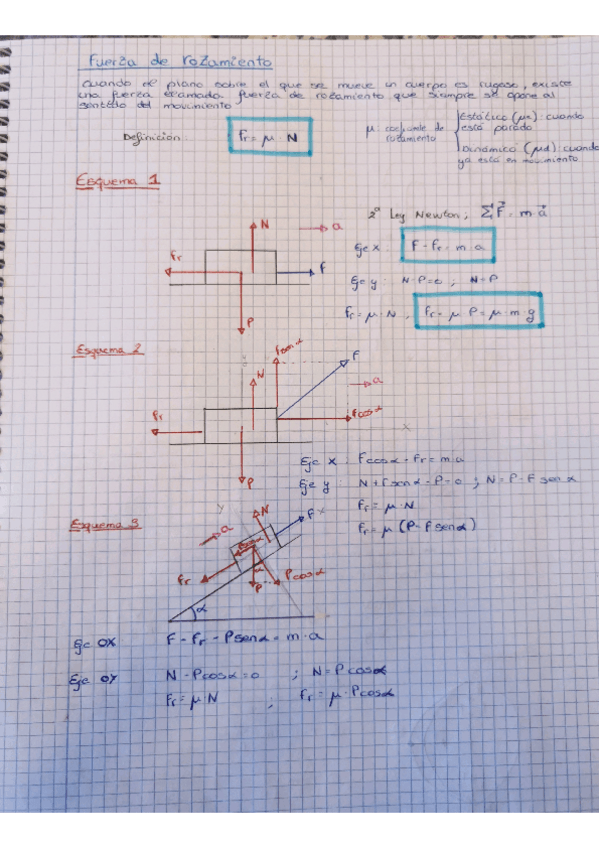 Fuerza de rozamiento
Cuando el plano sobre el que se mueve un cuerpo es rugoso, existe
una fuerza llamada fuerza de rozamiento que siempre se opone al
sentido del movimiento.
Definición: Fr = μ · N
μ coeficiente de rozamiento
Estático (μe): cuando
está parado
Dinámico (μd): cuando
ya está en movimiento
Esquema 1
2ª Ley Newton; Σ F⃗ = m·a⃗
N
a
Eje x: F - Fr = m · a
Fr
F
Eje y: N - P = 0 ; N = P
Fr = μ · N ; Fr = μ · P = μ · m · g
P
Esquema 2
Fsenα
F
N
a
Fr
Fcosα
x
Eje x: Fcosα - Fr = m·a
P
Eje y: N + Fsenα - P = 0 ; N = P - F senα
Fr = μ · N
Fr = μ (P - F senα)
Esquema 3
y
N
F
x
a
Psenα
α
Fr
P
Pcosα
α
Eje OX F - Fr - Psenα = m · a
Eje OY N - Pcosα = 0 ; N = Pcosα
Fr = μ · N ; Fr = μ · Pcosα